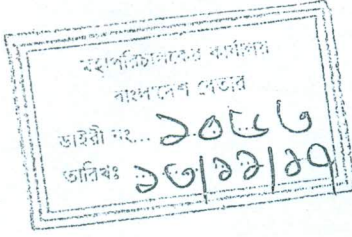 মহাপরিচালকের কার্যালয়
বাংলাদেশ বেতার
ডাইরী নং... ১০৮৬
তারিখঃ ১৩/১১/১৭